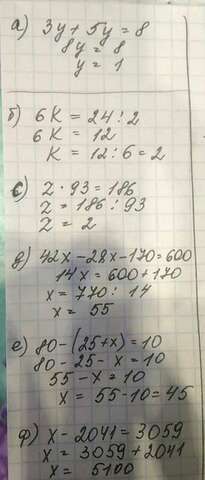 а) 3y + 5y = 8
8y = 8
y = 1
б) 6К = 24 : 2
6К = 12
К = 12 : 6 = 2
с) Z · 93 = 186
Z = 186 : 93
Z = 2
д) 42x - 28x - 170 = 600
14x = 600 + 170
x = 770 : 14
x = 55
е) 80 - (25 + x) = 10
80 - 25 - x = 10
55 - x = 10
x = 55 - 10 = 45
ф) x - 2041 = 3059
x = 3059 + 2041
x = 5100